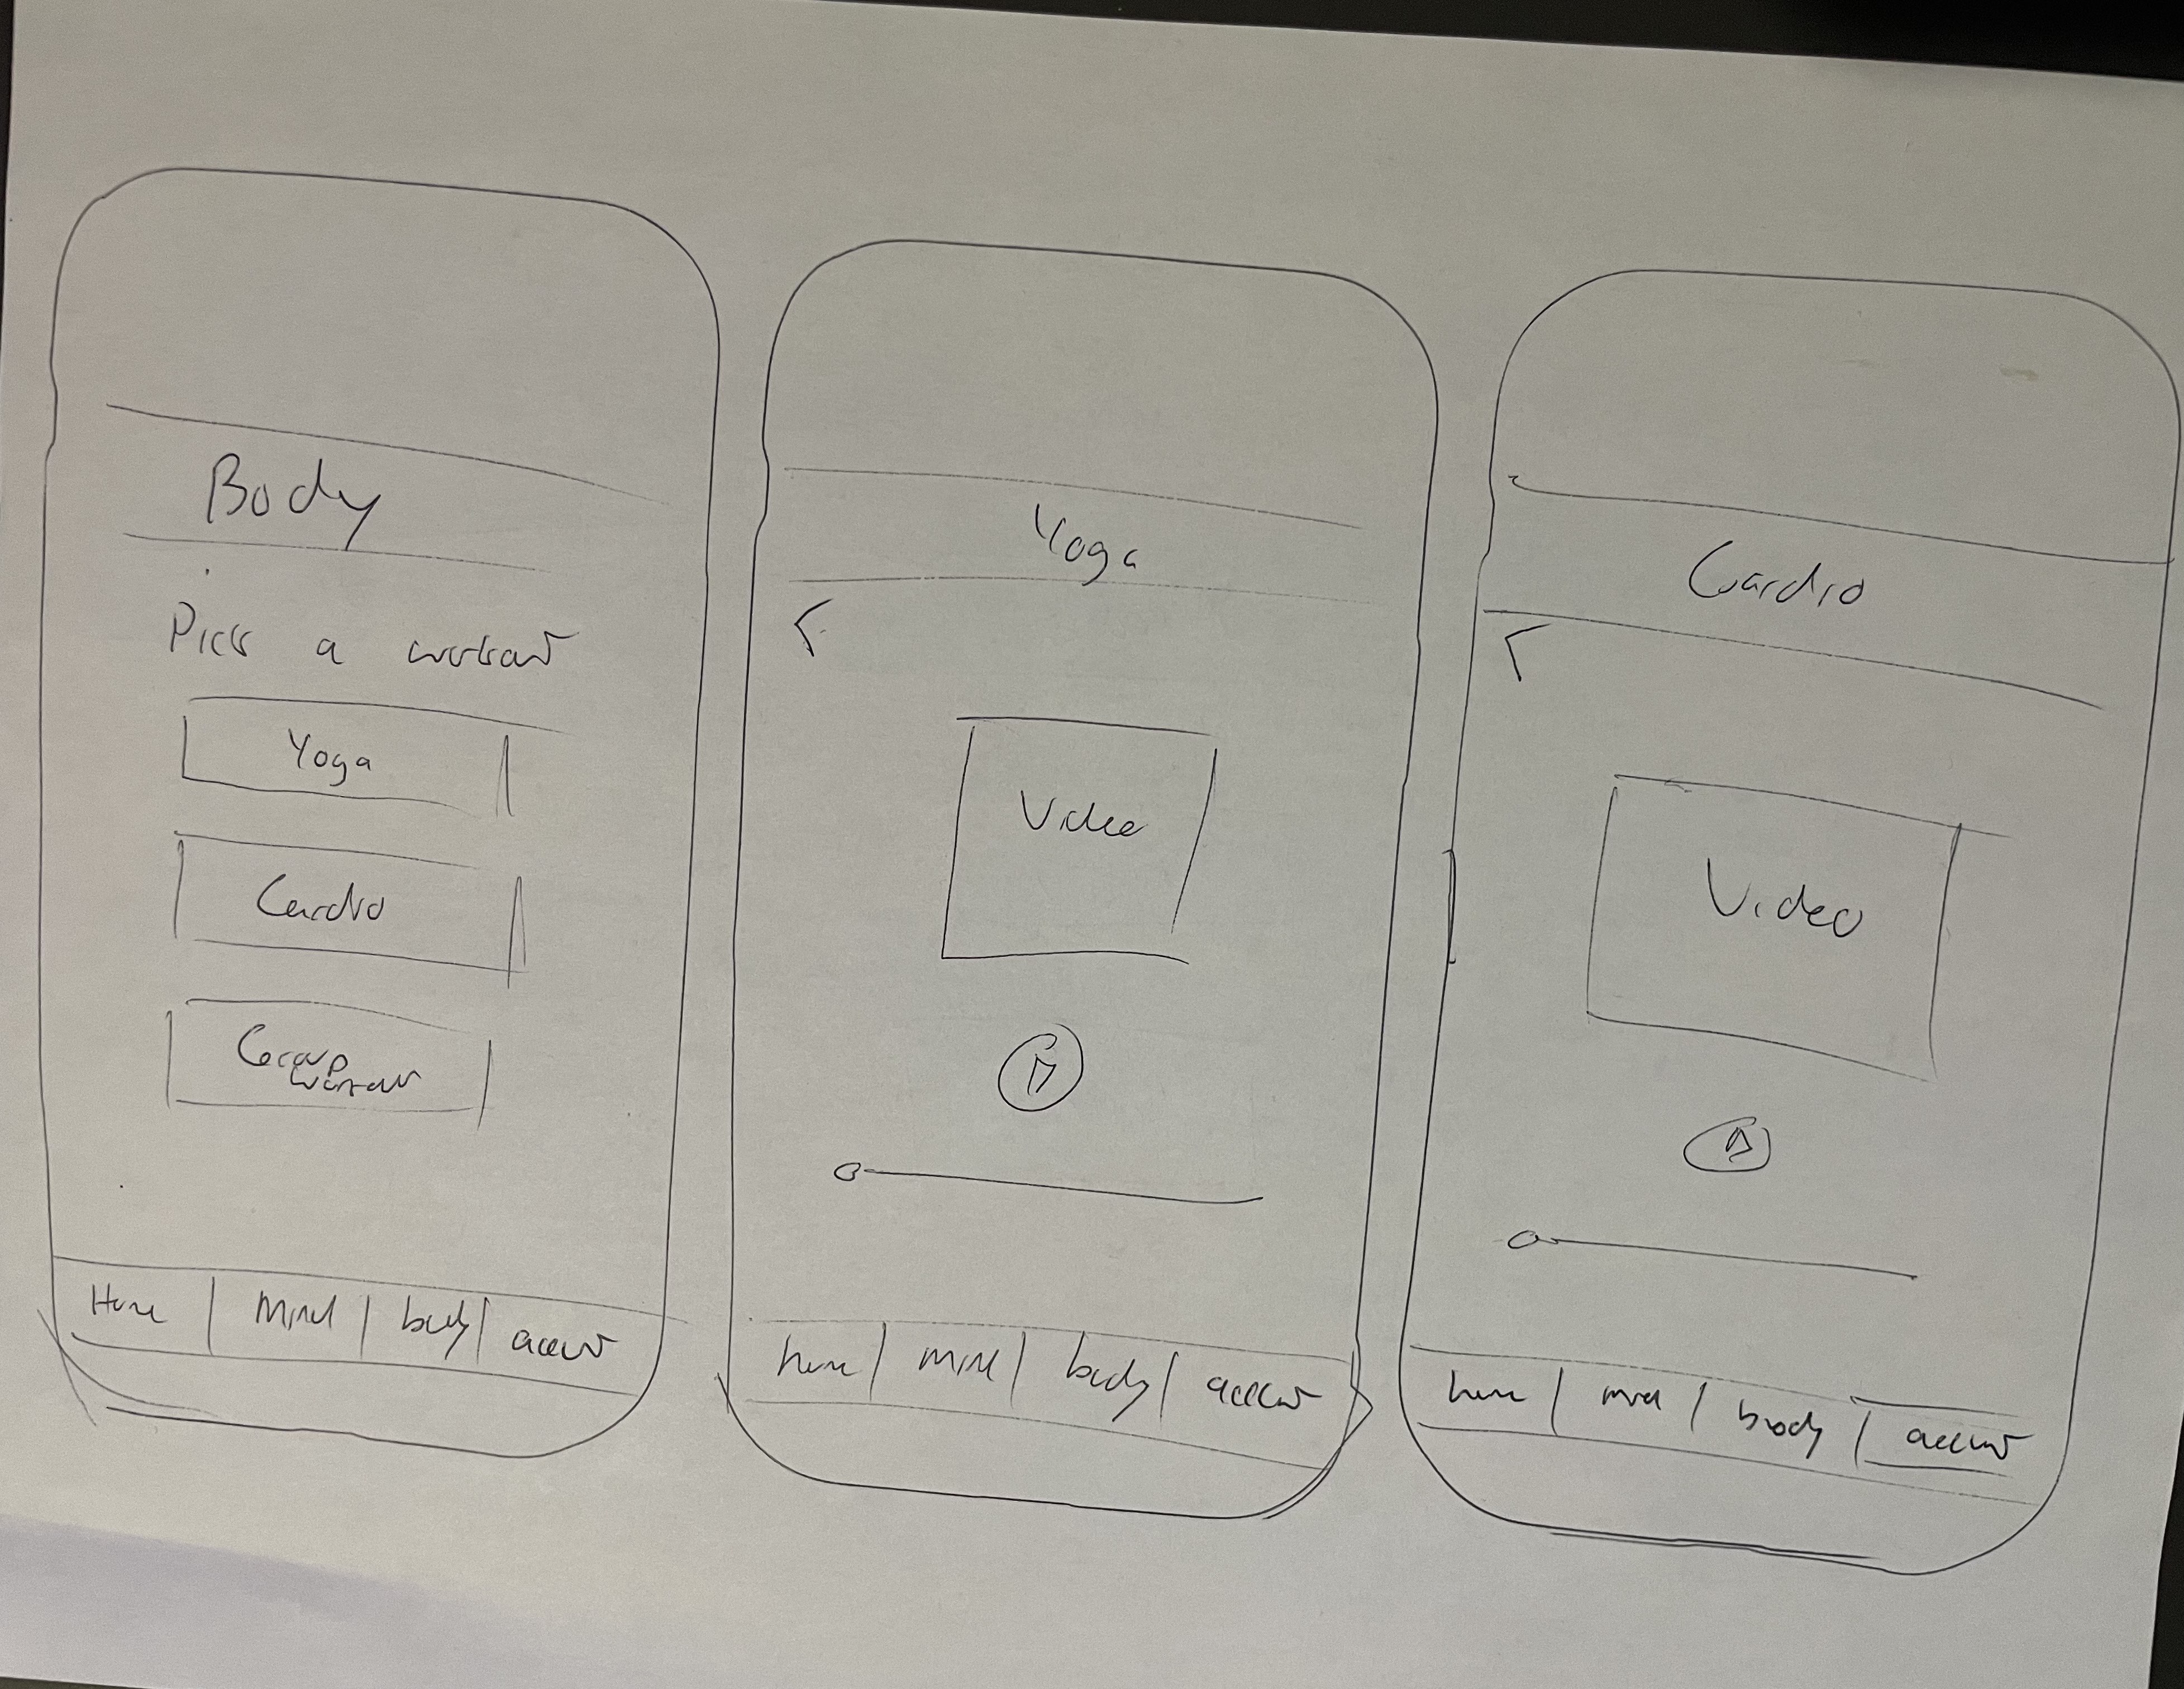 Body
Pick a workout
Yoga
Cardio
Group
workout
Home | Mind | body | account
Yoga
Video
home | mind | body | account
Cardio
Video
home | mind | body | account